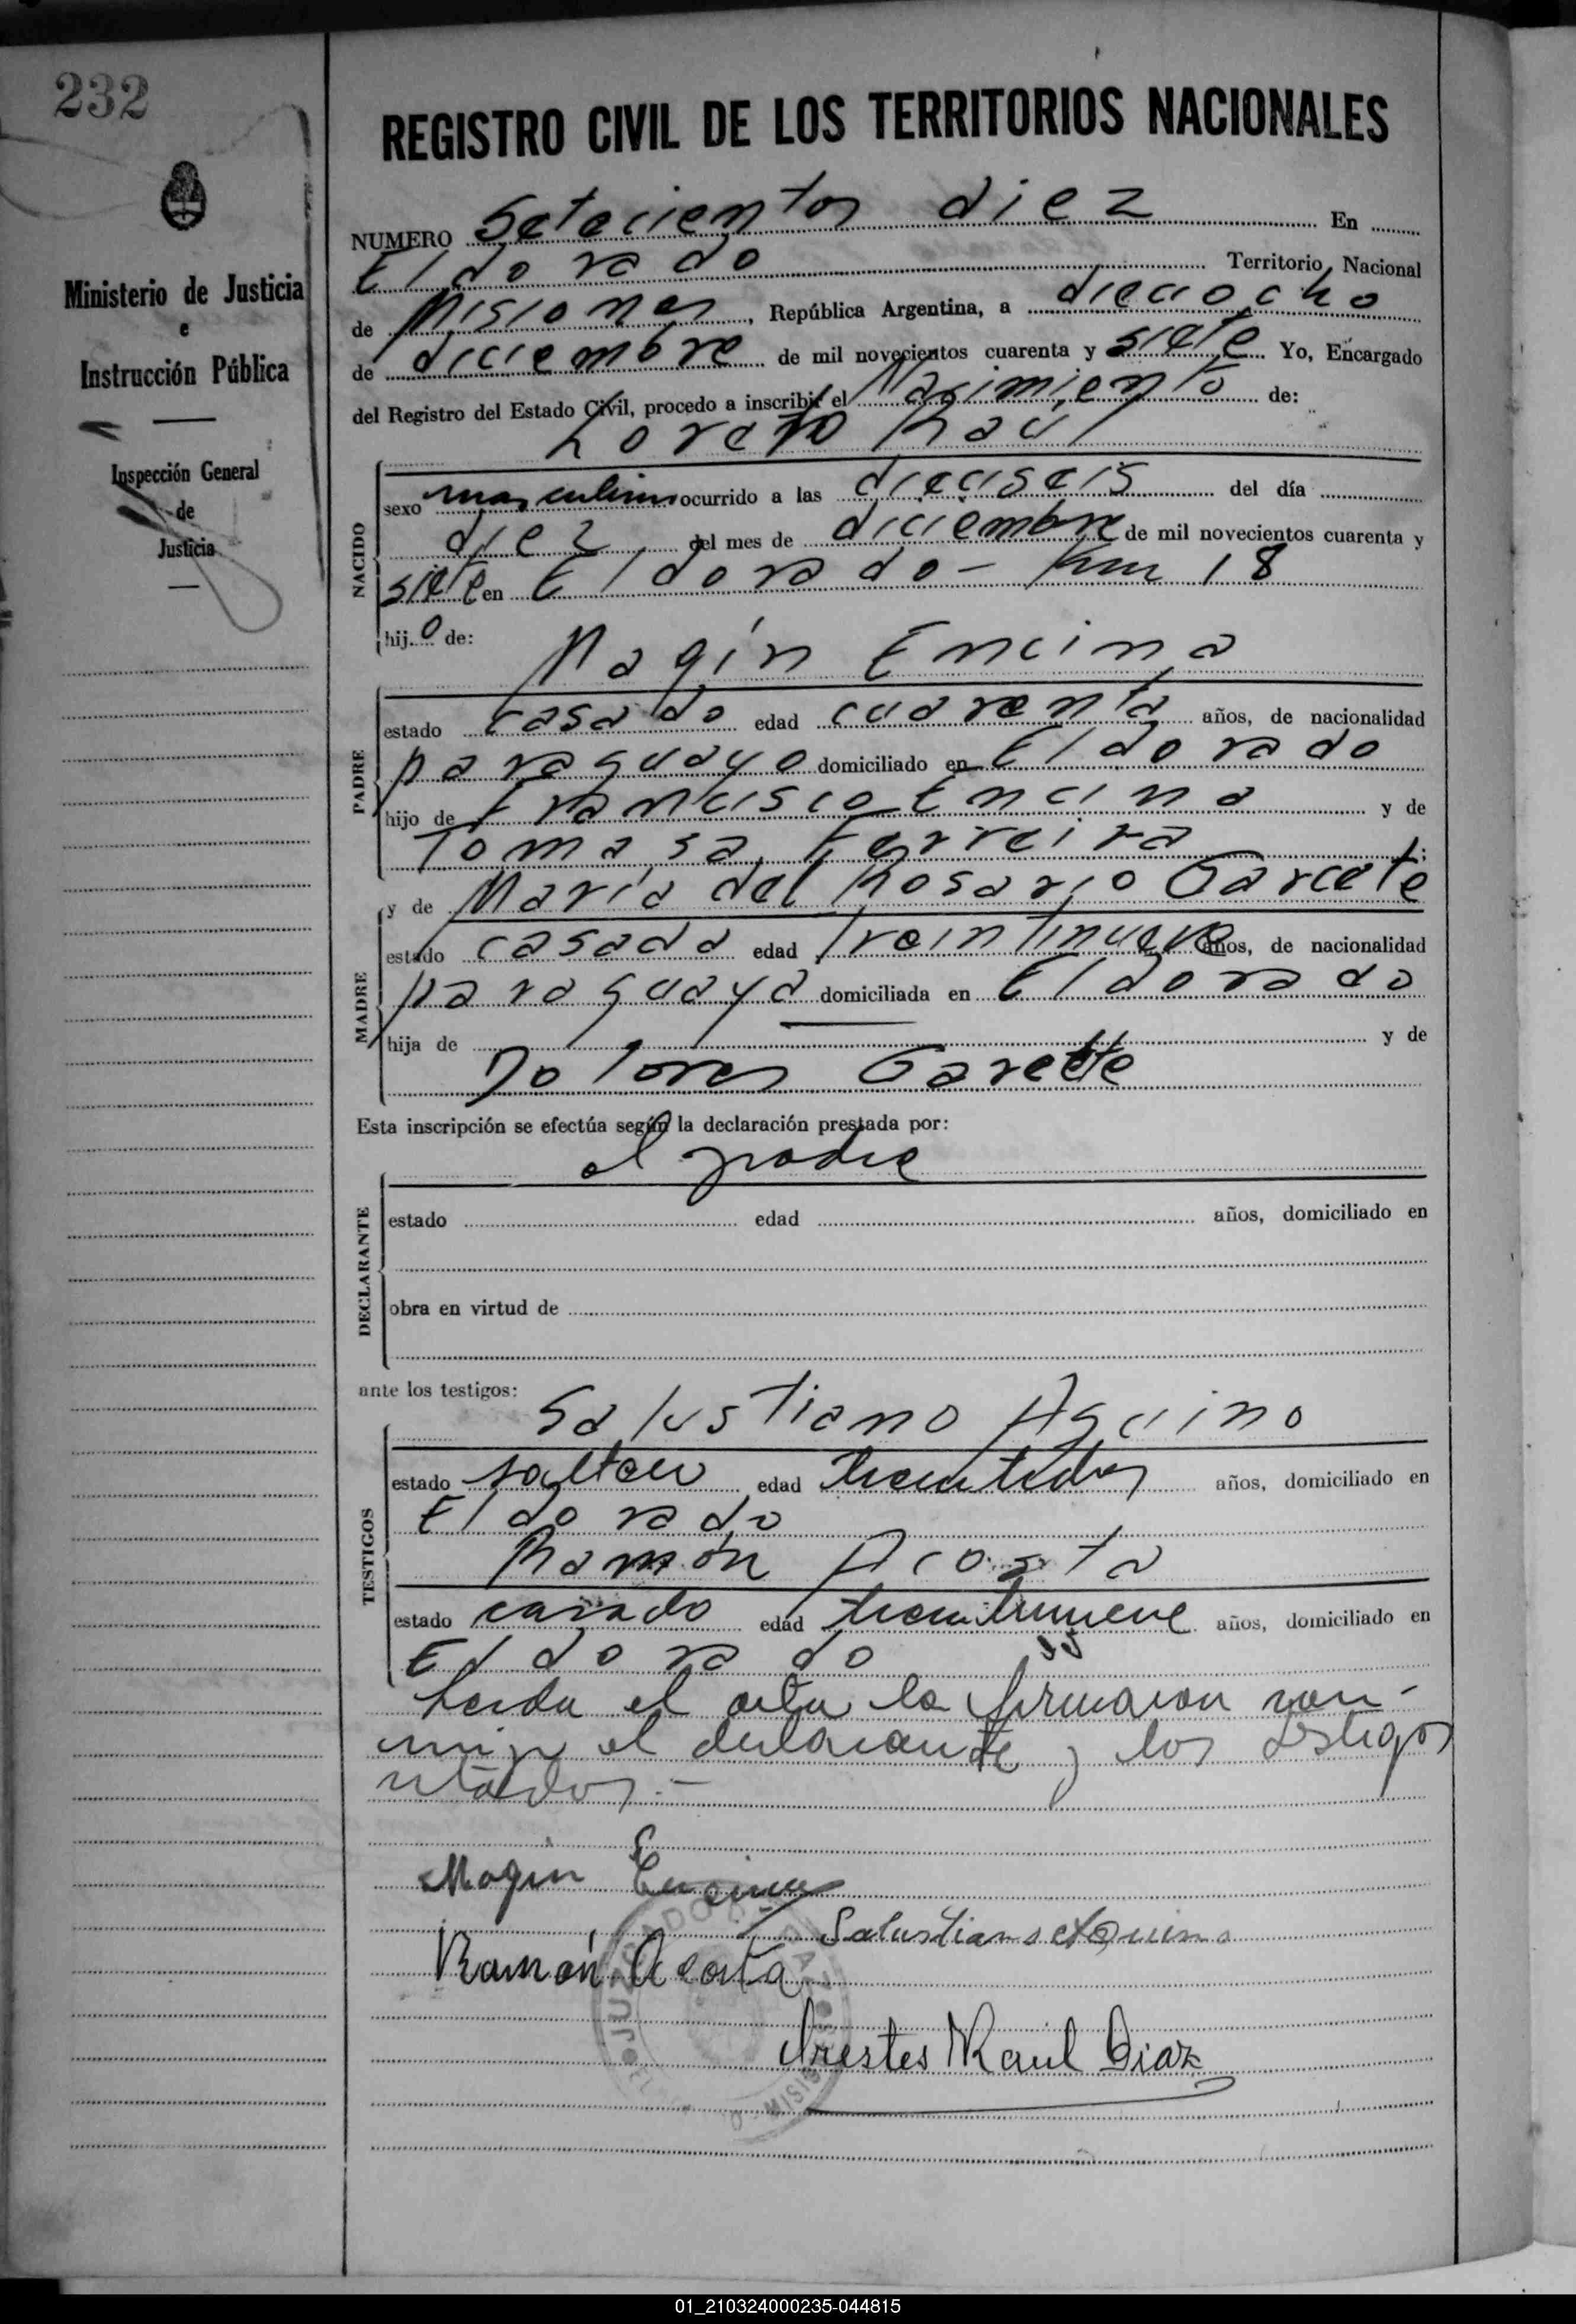 232
Ministerio de Justicia
e
Instrucción Pública
Inspección General
de
Justicia
REGISTRO CIVIL DE LOS TERRITORIOS NACIONALES
NUMERO Setecientos diez En
Eldorado Territorio Nacional
de Misiones, República Argentina, a dieciocho
de diciembre de mil novecientos cuarenta y siete Yo, Encargado
del Registro del Estado Civil, procedo a inscribir el Nacimiento de:
Loreto Raúl
NACIDO
sexo masculino ocurrido a las dieciseis del día
diez del mes de diciembre de mil novecientos cuarenta y
siete en Eldorado - Km 18
hijo de:
Magín Encina
PADRE
estado casado edad cuarenta años, de nacionalidad
paraguayo domiciliado en Eldorado
hijo de Francisco Encina y de
Tomasa Ferreira ;
y de María del Rosario Garcete
MADRE
estado casada edad treintinueve años, de nacionalidad
paraguaya domiciliada en Eldorado
hija de — y de
Dolores Garcete
Esta inscripción se efectúa según la declaración prestada por:
el padre
DECLARANTE
estado edad años, domiciliado en
obra en virtud de
ante los testigos:
Salustiano Aquino
TESTIGOS
estado soltero edad treintidos años, domiciliado en
Eldorado
Ramón Acosta
estado casado edad treintinueve años, domiciliado en
Eldorado
Leida el acta la firmaron con-
migo el declarante y los testigos
citados.-
Magin Encina
Salustiano Aquino
Ramón Acosta
Orestes Raul Diaz
JUZGADO DE PAZ
MISIONES
01_210324000235-044815